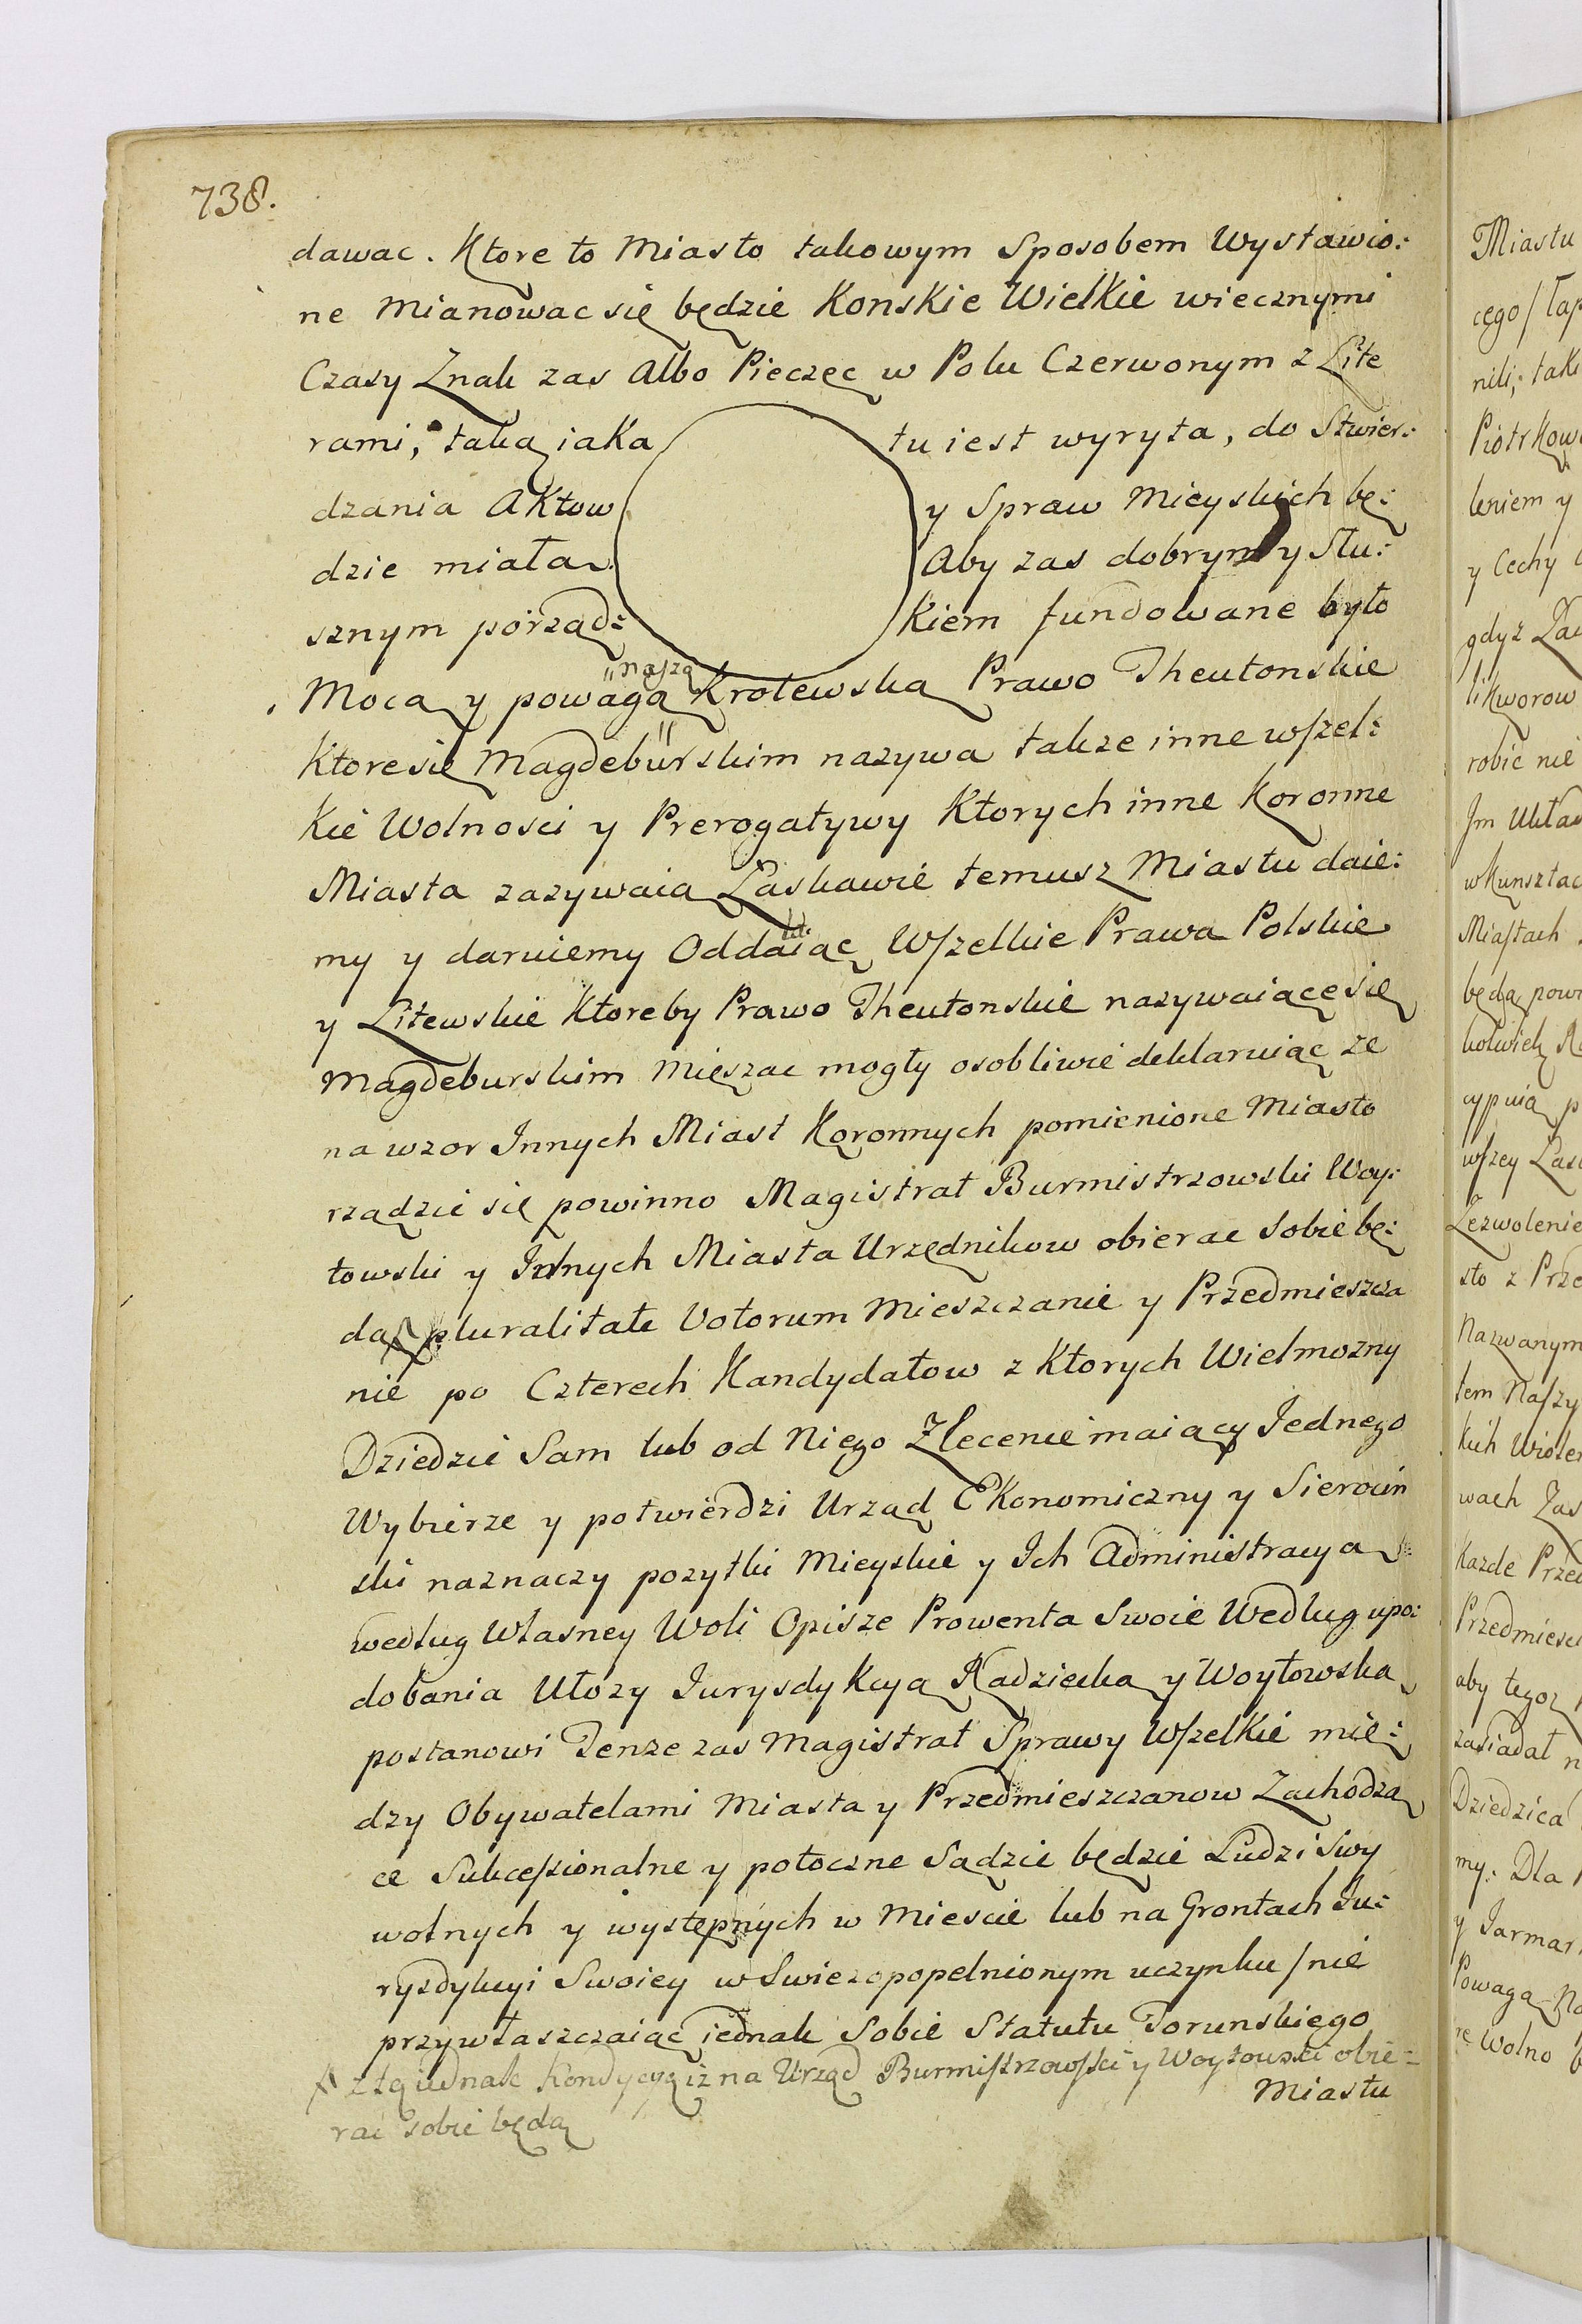 738.
dawac. Ktore to Miasto takowym Sposobem Wystawio:
ne Mianowac się będzie Konskie Wielkie wiecznymi
Czasy Znak zas Albo Pieczęc w Polu Czerwonym z Lite
rami, taką iaka tu iest wyryta, do Stwier:
dzania Aktow y Spraw Mieyskich bę:
dzie miała. Aby zas dobrym y Słu:
sznym porząd: kiem fundowane było
Mocą y powagą "naszą Krolewską Prawo Theutonskie
Ktore się Magdeburskim nazywa takze inne wszel:
kie Wolnosci y Prerogatywy Ktorych inne Koronne
Miasta zazywaią Łaskawie temusz Miastu daie:
my y daruiemy Oddaiąc Wszelkie Prawa Polskie
y Litewskie Ktoreby Prawo Theutonskie nazywaiące się
Magdeburskim Mięszac mogły osobliwie deklaruiąc ze
na wzor Innych Miast Koronnych pomienione Miasto
rządzic się powinno Magistrat Burmistrzowski Woy:
towski y Innych Miasta Urzędnikow obierac Sobie bę:
dą pluralitate Votorum Mieszczanie y Przedmieszcza
nie po Czterech Kandydatow z Ktorych Wielmozny
Dziedzic Sam lub od Niego Zlecenie maiący Jednego
Wybierze y potwierdzi Urząd Ekonomiczny y Sierocin
ski naznaczy pozytki Mieyskie y Ich Administracyą
według Własney Woli Opisze Prowenta Swoie Według upo:
dobania Ułozy Jurysdykcyą Radziecką y Woytowską
postanowi Tenze zas Magistrat Sprawy Wszelkie mię:
dzy Obywatelami Miasta y Przedmieszczanow Zachodzą
ce Sukcessionalne y potoczne Sądzic będzie Ludzi Swy
wolnych y występnych w Miescie lub na Grontach Ju:
rysdykcyi Swoiey w Swiezo popełnionym uczynku /nie
przywłaszczaiąc iednak Sobie Statutu Torunskiego
z tą iednak Kondycyą iz na Urząd Burmistrzowski y Woytowski obie=
Miastu
rac sobie będą
Miastu
cego/
nili, tak
leniem y
y Cechy
likworow
robic nie
wkunsztac
Miastach
będą
wszey
Zezwolenie
sto z Prze
Nazwanym
tem Naszy
kich
wach Zas
Kazde Przed
Przedmiesc
aby tegoz
zasiadał
Dziedzica
my: Dla
y Jarmar
Powagą
re Wolno